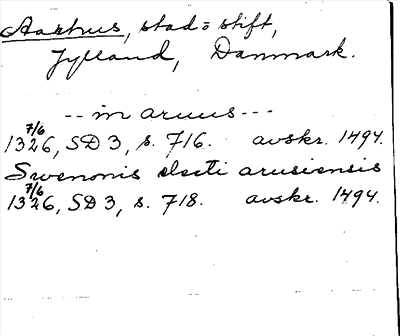 Aarhus, stad = stift,
Jylland, Danmark.
-- in aruus ---
7/6
1326, SD 3, s. 716. avskr. 1494.
Swenonis electi arusiensis
7/6
1326, SD 3, s. 718. avskr. 1494.